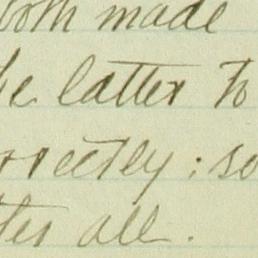 both made
he latter to
rrectly; so
tter all.